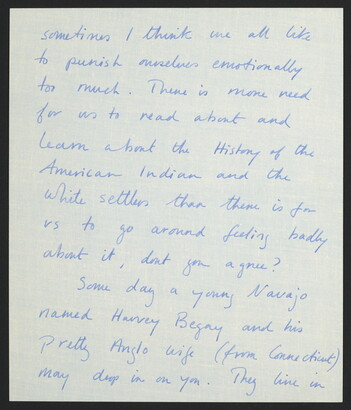 sometimes I think we all like
to punish ourselves emotionally
too much. There is more need
for us to read about and
learn about the History of the
American Indian and the
White settlers than there is for
us to go around feeling badly
about it, dont you agree?
Some day a young Navajo
named Harvey Begay and his
pretty Anglo wife (from Connecticut)
may drop in on you. They live in